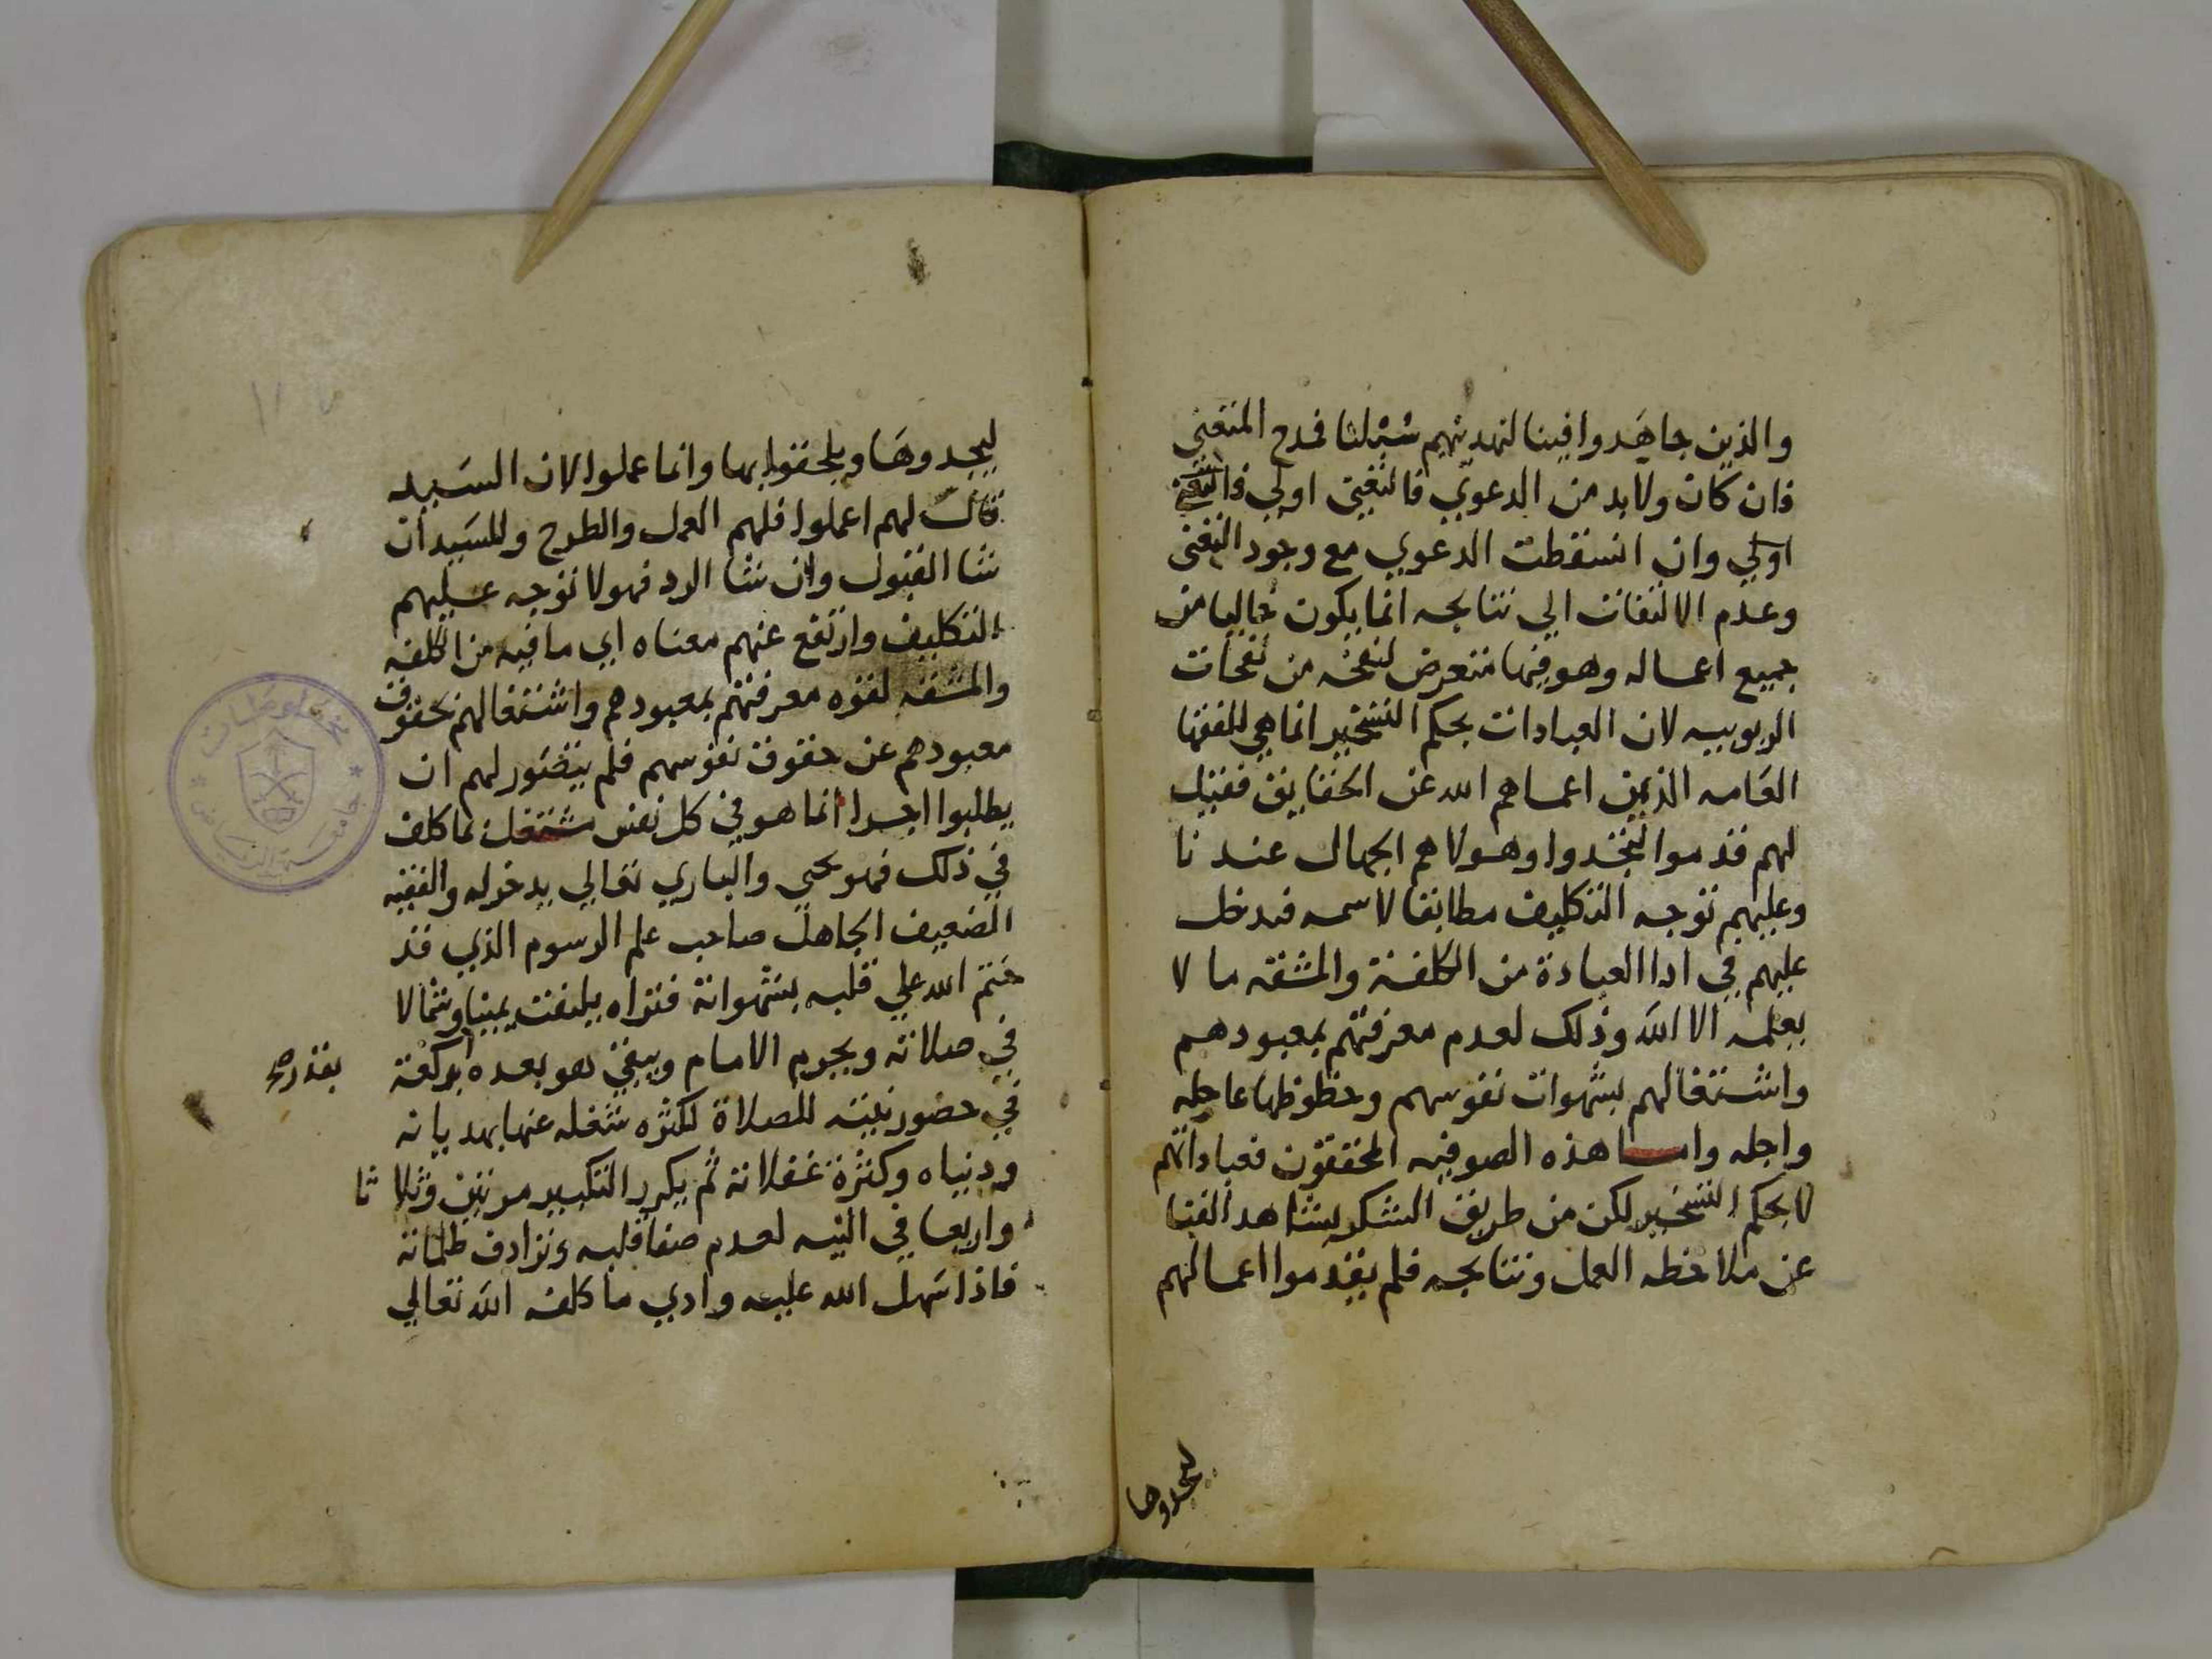 والذين جاهدوا فينا لنهدينهم سبلنا فمدح المتقني
فان كان ولابد من الدعوي فالتغني اولي فالتغني
اولي وان انسقطت الدعوي مع وجود التغني
وعدم الالتفات الي نتايجه انما يكون خاليا من
جميع اعماله وهو فيها متعرض لنفحه من نفحات
الربوبيه لان العبادات بحكم التسخير انما هي للفقها
العامه الذين اعماهم الله عن الحقايق فقيل
لهم قدموا لتجدوا وهولا هم الجهال عندنا
وعليهم توجه التكليف مطابقا لاسمه فدخل
عليهم في ادا العبادة من الكلفة والمشقه ما لا
يعلمه الا الله وذلك لعدم معرفتهم بمعبودهم
واشتغالهم بشهوات نفوسهم وحظوظها عاجله
واجله واما هذه الصوفيه المحققون فعباداتهم
لا بحكم التسخير لكن من طريق الشكر بشاهد الفنا
عن ملاحظه العمل ونتايجه فلم يقدموا اعمالهم
ليجدوها
ليجدوها ويلحقوا بها وانما عملوا لان السيد
قال لهم اعملوا فلهم العمل والطرح وللسيد ان
شا القبول وان شا الرد فهولا توجه عليهم
التكليف وارتفع عنهم معناه اي ما فيه من الكلفه
والمشقه لقوه معرفتهم بمعبودهم واشتغالهم بحقوق
معبودهم عن حقوق نفوسهم فلم يتصور لهم ان
يطلبوا اجرا انما هو في كل نفس مشتغل بما كلف
في ذلك فهو يحيي والباري تعالي يدخوله والفقيه
الضعيف الجاهل صاحب علم الرسوم الذي قد
ختم الله علي قلبه بشهواته فتراه يلتفت يمينا وشمالا
في صلاته ويجرم الامام ويبقي هو بعده بركعة
بقدر صح
في حضور نيته للصلاة لكثره شغله عنها بهديانه
ودنياه وكثرة غفلاته ثم يكرر التكبير مرتين وثلاثا
واربعا في النيه لعدم صفا قلبه وترادف ظلماته
فاذا سهل الله عليه وادي ما كلفه الله تعالي
مخطوطات
جامعة الرياض